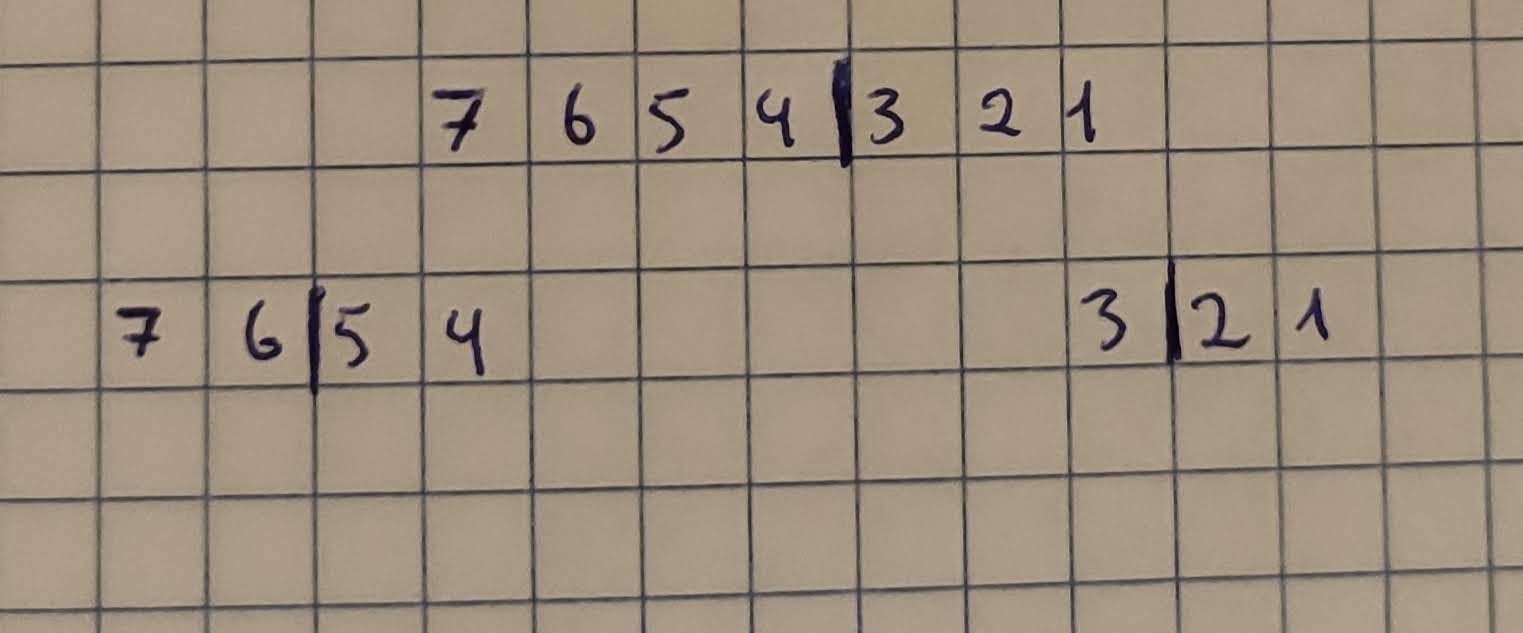 7 6 5 4 | 3 2 1
7 6 | 5 4 3 | 2 1